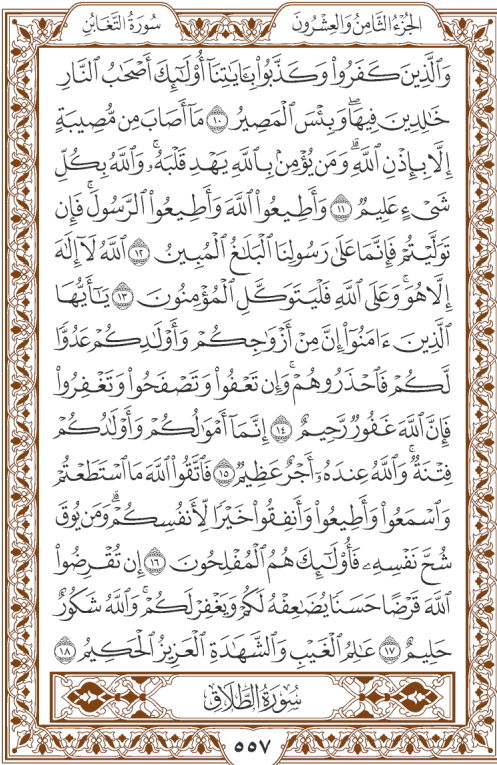 الجزء الثامن والعشرون
سورة التغابن
وَٱلَّذِينَ كَفَرُوا۟ وَكَذَّبُوا۟ بِـَٔايَـٰتِنَآ أُو۟لَـٰٓئِكَ أَصْحَـٰبُ ٱلنَّارِ
خَـٰلِدِينَ فِيهَا ۖ وَبِئْسَ ٱلْمَصِيرُ ١٠ مَآ أَصَابَ مِن مُّصِيبَةٍ
إِلَّا بِإِذْنِ ٱللَّهِ ۗ وَمَن يُؤْمِنۢ بِٱللَّهِ يَهْدِ قَلْبَهُۥ ۚ وَٱللَّهُ بِكُلِّ
شَىْءٍ عَلِيمٌ ١١ وَأَطِيعُوا۟ ٱللَّهَ وَأَطِيعُوا۟ ٱلرَّسُولَ ۚ فَإِن
تَوَلَّيْتُمْ فَإِنَّمَا عَلَىٰ رَسُولِنَا ٱلْبَلَـٰغُ ٱلْمُبِينُ ١٢ ٱللَّهُ لَآ إِلَـٰهَ
إِلَّا هُوَ ۚ وَعَلَى ٱللَّهِ فَلْيَتَوَكَّلِ ٱلْمُؤْمِنُونَ ١٣ يَـٰٓأَيُّهَا
ٱلَّذِينَ ءَامَنُوٓا۟ إِنَّ مِنْ أَزْوَٰجِكُمْ وَأَوْلَـٰدِكُمْ عَدُوًّا
لَّكُمْ فَٱحْذَرُوهُمْ ۚ وَإِن تَعْفُوا۟ وَتَصْفَحُوا۟ وَتَغْفِرُوا۟
فَإِنَّ ٱللَّهَ غَفُورٌ رَّحِيمٌ ١٤ إِنَّمَآ أَمْوَٰلُكُمْ وَأَوْلَـٰدُكُمْ
فِتْنَةٌ ۚ وَٱللَّهُ عِندَهُۥٓ أَجْرٌ عَظِيمٌ ١٥ فَٱتَّقُوا۟ ٱللَّهَ مَا ٱسْتَطَعْتُمْ
وَٱسْمَعُوا۟ وَأَطِيعُوا۟ وَأَنفِقُوا۟ خَيْرًا لِّأَنفُسِكُمْ ۗ وَمَن يُوقَ
شُحَّ نَفْسِهِۦ فَأُو۟لَـٰٓئِكَ هُمُ ٱلْمُفْلِحُونَ ١٦ إِن تُقْرِضُوا۟
ٱللَّهَ قَرْضًا حَسَنًا يُضَـٰعِفْهُ لَكُمْ وَيَغْفِرْ لَكُمْ ۚ وَٱللَّهُ شَكُورٌ
حَلِيمٌ ١٧ عَـٰلِمُ ٱلْغَيْبِ وَٱلشَّهَـٰدَةِ ٱلْعَزِيزُ ٱلْحَكِيمُ ١٨
سُورَةُ الطَّلَاقِ
٥٥٧